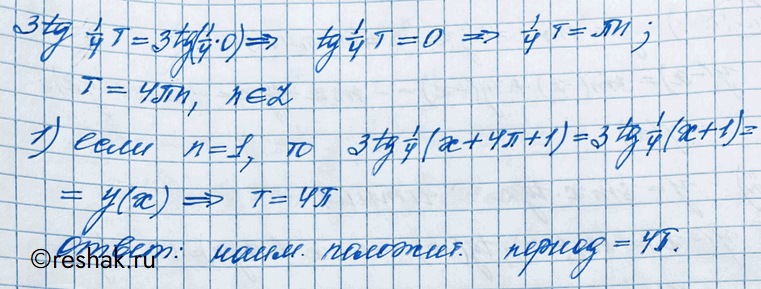 3tg 1/4 T = 3tg(1/4·0) ⇒ tg 1/4 T = 0 ⇒ 1/4 T = πn;
T = 4πn, n∈Z
1) если n=1, то 3tg 1/4 (x+4π+1) = 3tg 1/4 (x+1) =
= y(x) ⇒ T = 4π
Ответ: наим. положит. период = 4π.
©reshak.ru